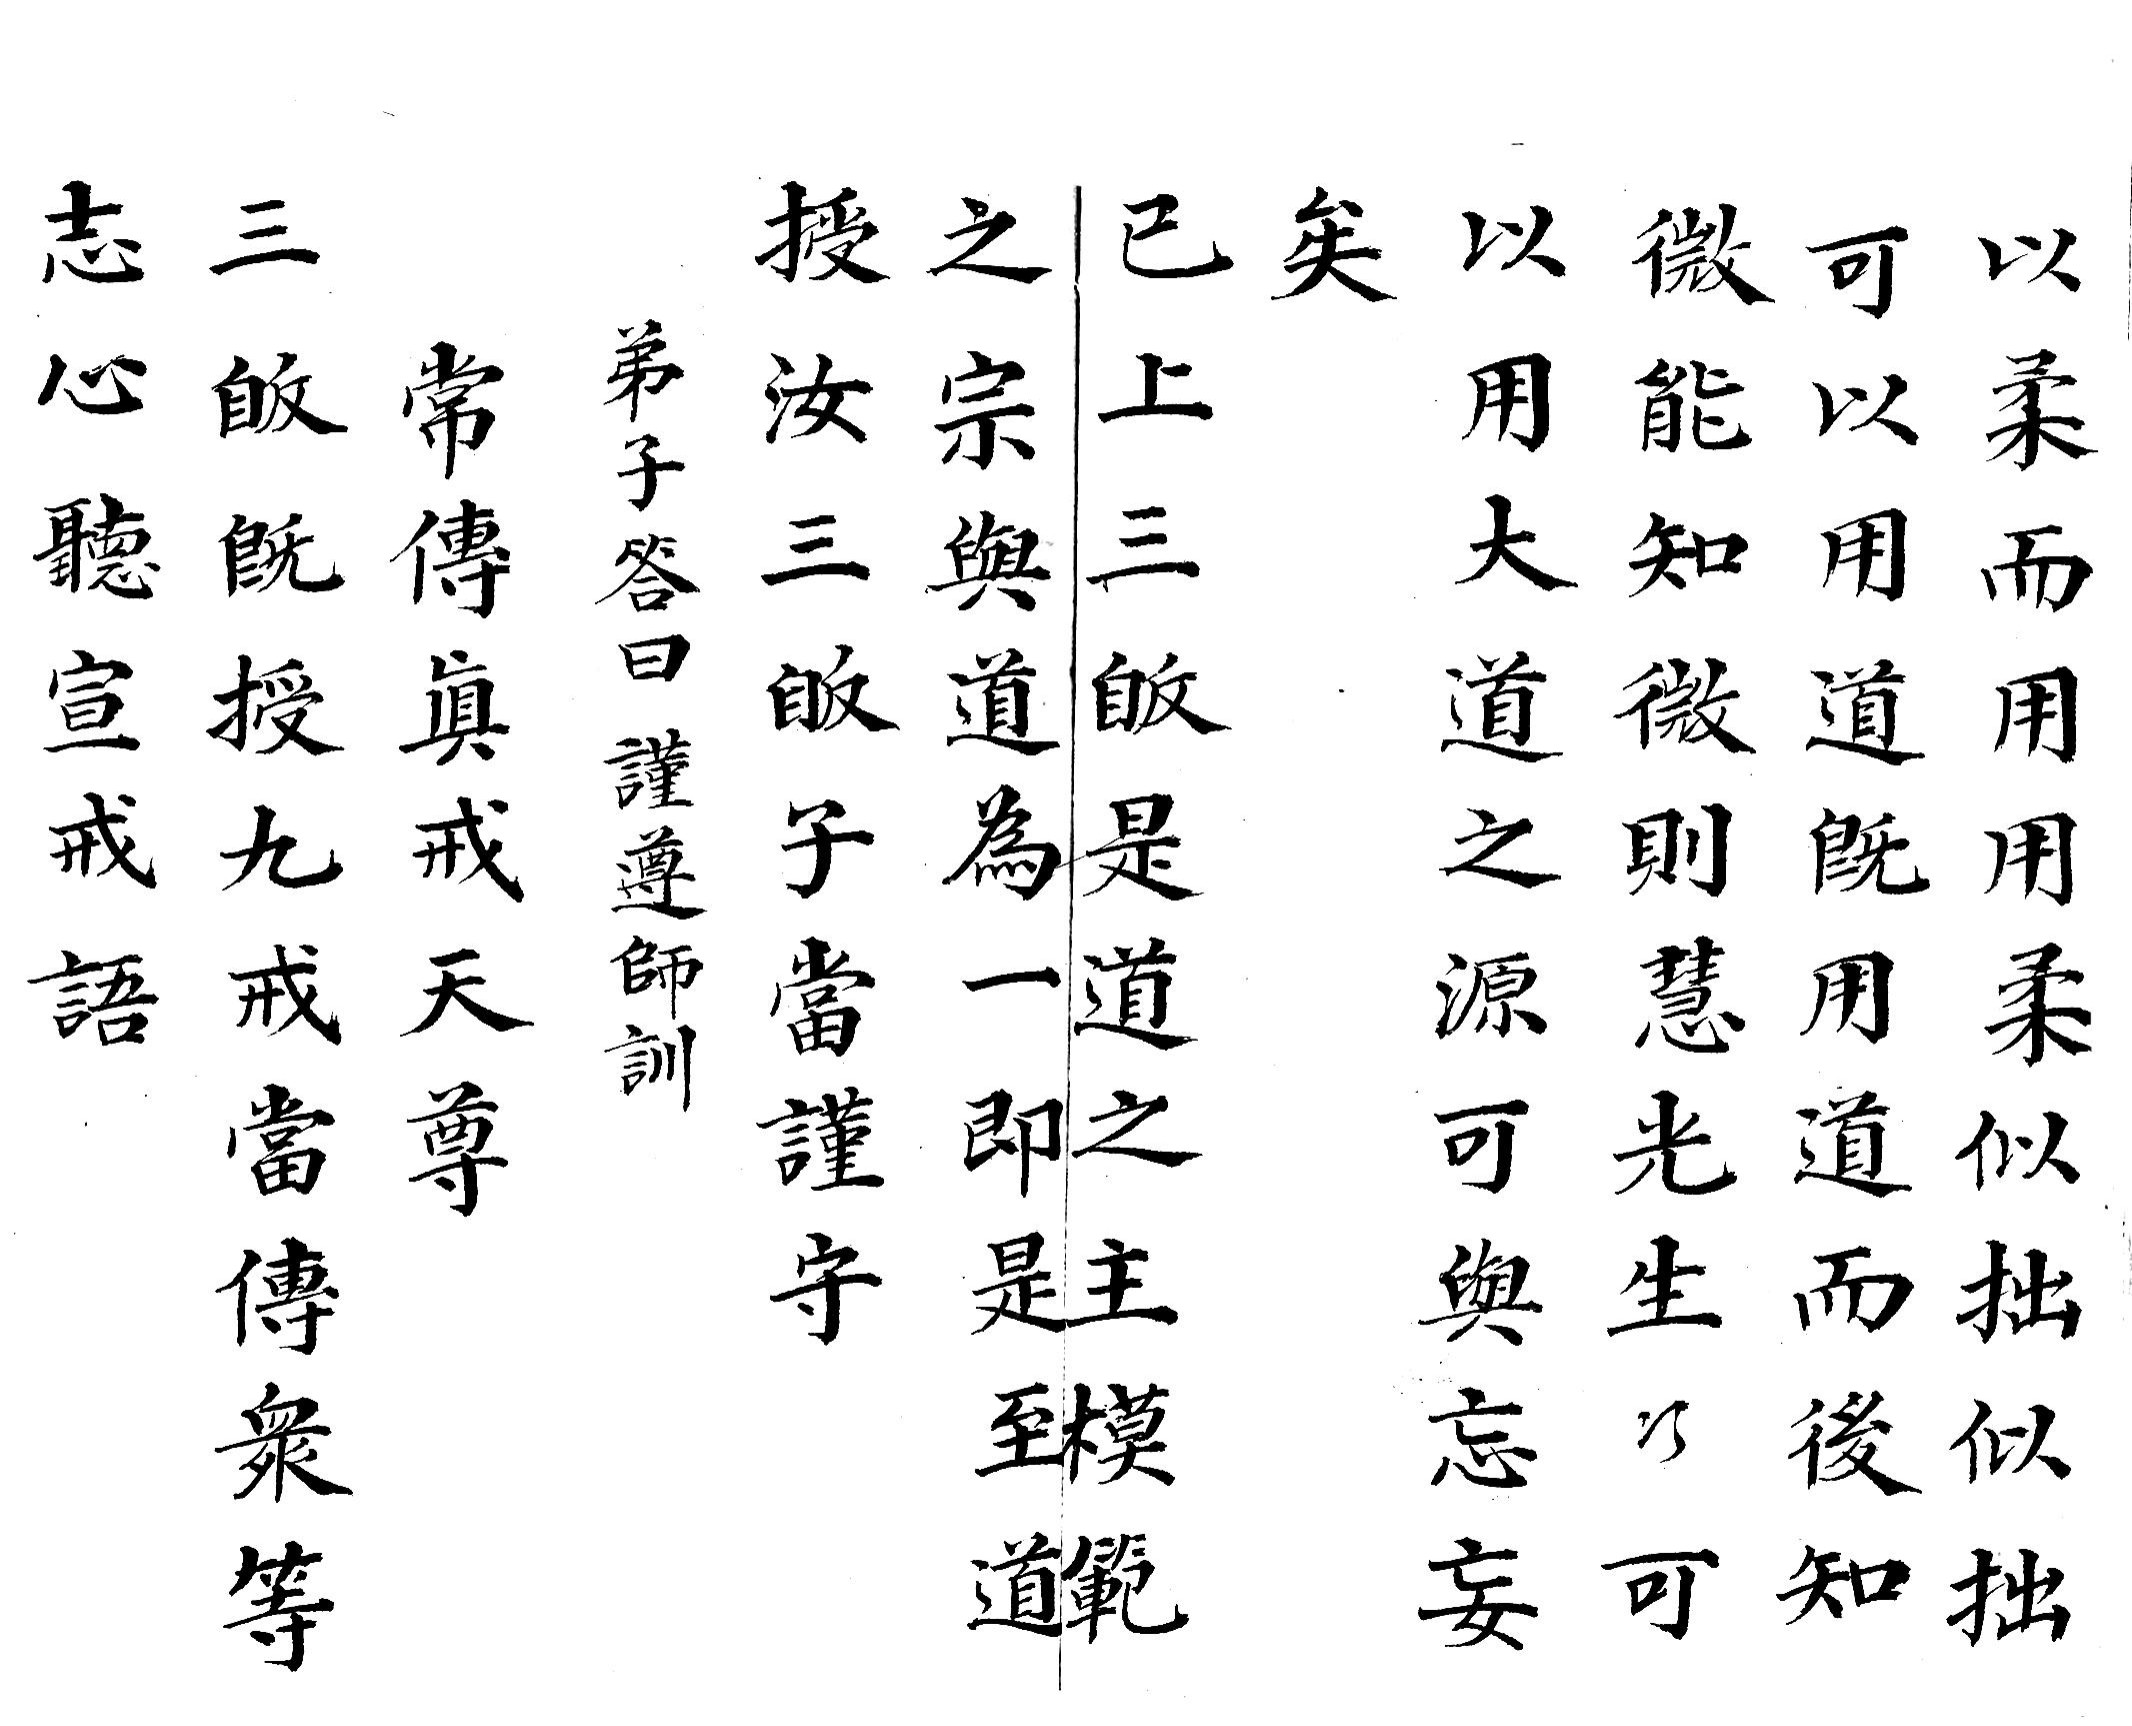 以柔而用用柔似拙似拙
可以用道旣用道而後知
微能知微則慧光生乃可
以用大道之源可與忘妄
矣
已上三皈是道之主模範
之宗與道為一即是至道
授汝三皈子當謹守
弟子答曰 謹遵師訓
常傳眞戒天尊
三皈旣授九戒當傳衆等
志心聽宣戒語